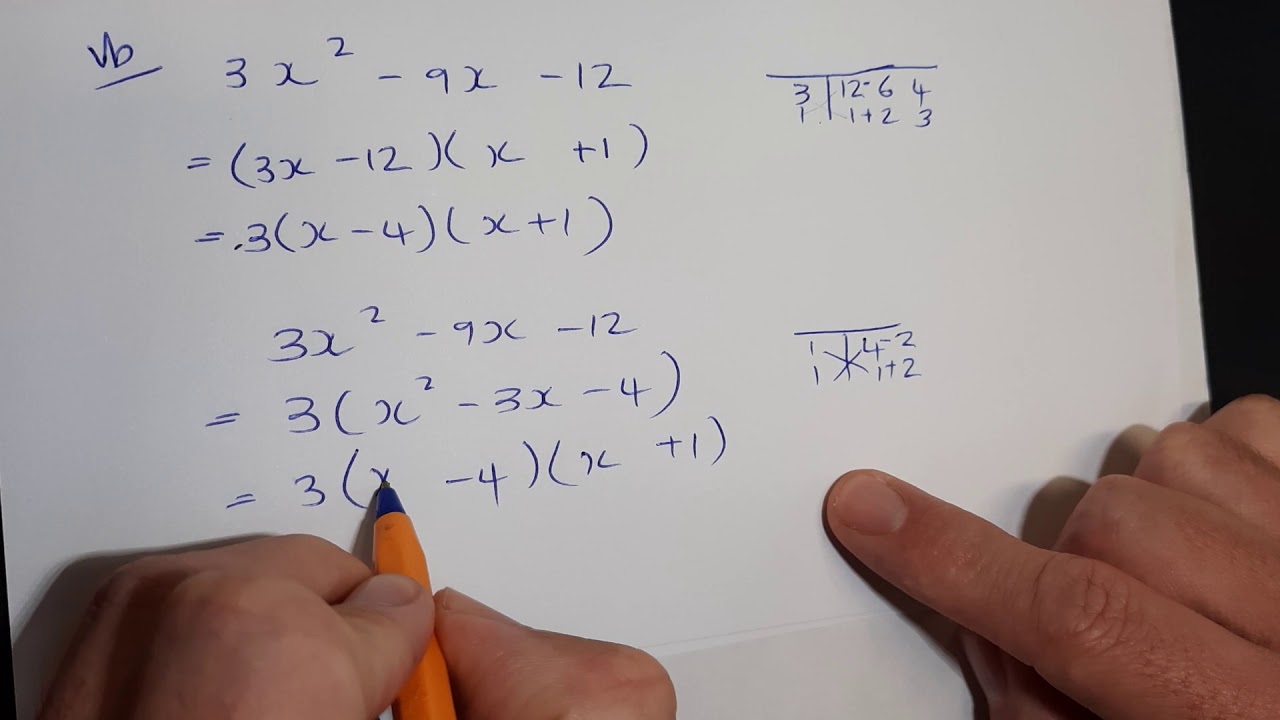 vb
3x² - 9x - 12
= (3x - 12)(x + 1)
= .3(x - 4)(x + 1)
3 | 12 - 6 4
1 | 1 + 2 3
3x² - 9x - 12
= 3(x² - 3x - 4)
= 3(x - 4)(x + 1)
1 | 4 - 2
1 | 1 + 2